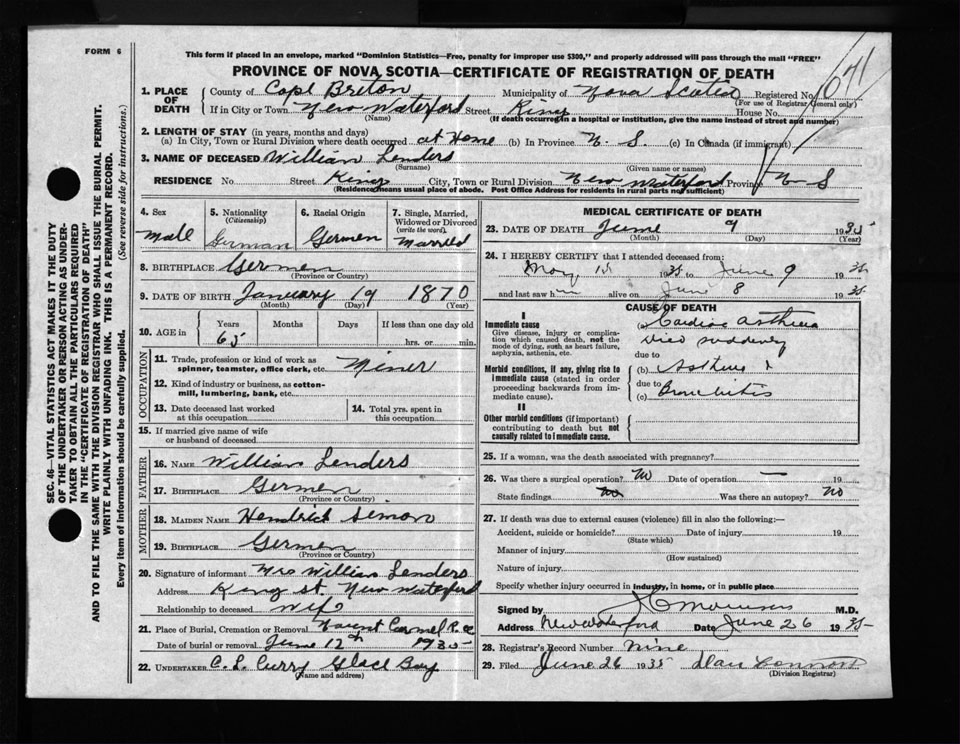 FORM 6
This form if placed in an envelope, marked "Dominion Statistics—Free, penalty for improper use $300," and properly addressed will pass through the mail "FREE"
PROVINCE OF NOVA SCOTIA—CERTIFICATE OF REGISTRATION OF DEATH
671
1. PLACE OF DEATH
County of Cape Breton Municipality of Nova Scotia Registered No.
(For use of Registrar General only)
If in City or Town New Waterford Street King House No.
(Name) (If death occurred in a hospital or institution, give the name instead of street and number)
2. LENGTH OF STAY (in years, months and days)
(a) In City, Town or Rural Division where death occurred at Home (b) In Province N. S. (c) In Canada (if immigrant)
3. NAME OF DECEASED William Lenders
(Surname) (Given name or names)
RESIDENCE No. Street King City, Town or Rural Division New Waterford Province N S
(Residence means usual place of abode. Post Office Address for residents in rural parts not sufficient)
4. Sex
Male
5. Nationality
(Citizenship)
German
6. Racial Origin
Germen
7. Single, Married,
Widowed or Divorced
(write the word)
Married
8. BIRTHPLACE Germen
(Province or Country)
9. DATE OF BIRTH January 19 1870
(Month) (Day) (Year)
10. AGE in
Years Months Days If less than one day old
65
hrs. or min.
OCCUPATION
11. Trade, profession or kind of work as
spinner, teamster, office clerk, etc. Miner
12. Kind of industry or business, as cotton-
mill, lumbering, bank, etc.
13. Date deceased last worked
at this occupation
14. Total yrs. spent in
this occupation
15. If married give name of wife
or husband of deceased
FATHER
16. NAME William Lenders
17. BIRTHPLACE Germen
(Province or Country)
MOTHER
18. MAIDEN NAME Hendrick Semon
19. BIRTHPLACE Germen
(Province or Country)
20. Signature of informant Mrs William Lenders
Address King St. New Waterford
Relationship to deceased Wife
21. Place of Burial, Cremation or Removal Mount Carmel R.C
Date of burial or removal June 12th 1935
22. UNDERTAKER C. L. Curry Glace Bay
(Name and address)
MEDICAL CERTIFICATE OF DEATH
23. DATE OF DEATH June 9 1935
(Month) (Day) (Year)
24. I HEREBY CERTIFY that I attended deceased from:
May 15 1935 to June 9 1935
and last saw him alive on June 8 1935
CAUSE OF DEATH
I
Immediate cause
Give disease, injury or complica-
tion which caused death, not the
mode of dying, such as heart failure,
asphyxia, asthenia, etc.
(a) Cardiac asthma
Died suddenly
due to
Morbid conditions, if any, giving rise to
immediate cause (stated in order
proceeding backwards from im-
mediate cause).
(b) Asthma &
due to
(c) Bronchitis
II
Other morbid conditions (if important)
contributing to death but not
causally related to immediate cause.
25. If a woman, was the death associated with pregnancy?
26. Was there a surgical operation? No Date of operation — 19
State findings No Was there an autopsy? No
27. If death was due to external causes (violence) fill in also the following:—
Accident, suicide or homicide? Date of injury 19
(State which)
Manner of injury
(How sustained)
Nature of injury
Specify whether injury occurred in industry, in home, or in public place
Signed by M.D.
Address New Waterford Date June 26 1935
28. Registrar's Record Number nine
29. Filed June 26 1935
(Division Registrar)
SEC. 46—VITAL STATISTICS ACT MAKES IT THE DUTY
OF THE UNDERTAKER OR PERSON ACTING AS UNDER-
TAKER TO OBTAIN ALL THE PARTICULARS REQUIRED
IN THE "CERTIFICATE OF REGISTRATION OF DEATH"
AND TO FILE THE SAME WITH THE DIVISION REGISTRAR WHO SHALL ISSUE THE BURIAL PERMIT.
WRITE PLAINLY WITH UNFADING INK. THIS IS A PERMANENT RECORD.
Every item of information should be carefully supplied. (See reverse side for instructions.)